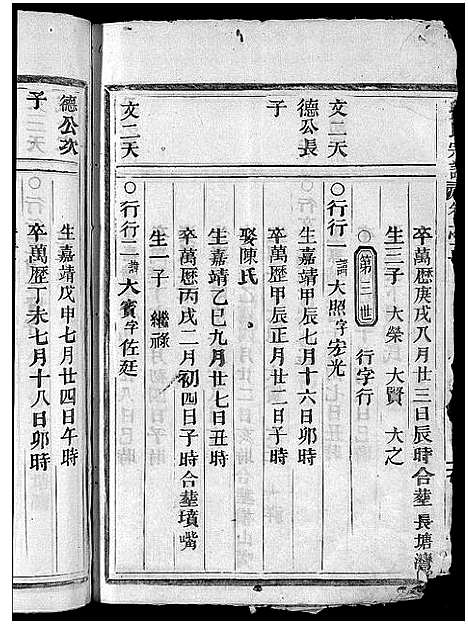 卒萬歷庚戌八月廿三日辰時合塟長塘灣
生三子 大榮 大賢 大之
第三世 行字行
文二天
德公長
子
○行行一諱大照字宏光
生嘉靖甲辰七月十六日卯時
卒萬歷甲辰正月廿二日子時
娶陳氏
生嘉靖乙巳九月廿七日丑時
卒萬歷丙戌二月初四日子時合塟墳嘴
生一子 繼祿
文二天
○行行二諱大賓字佐廷
德公次
子
生嘉靖戊申七月廿四日午時
卒萬歷丁未七月十八日卯時